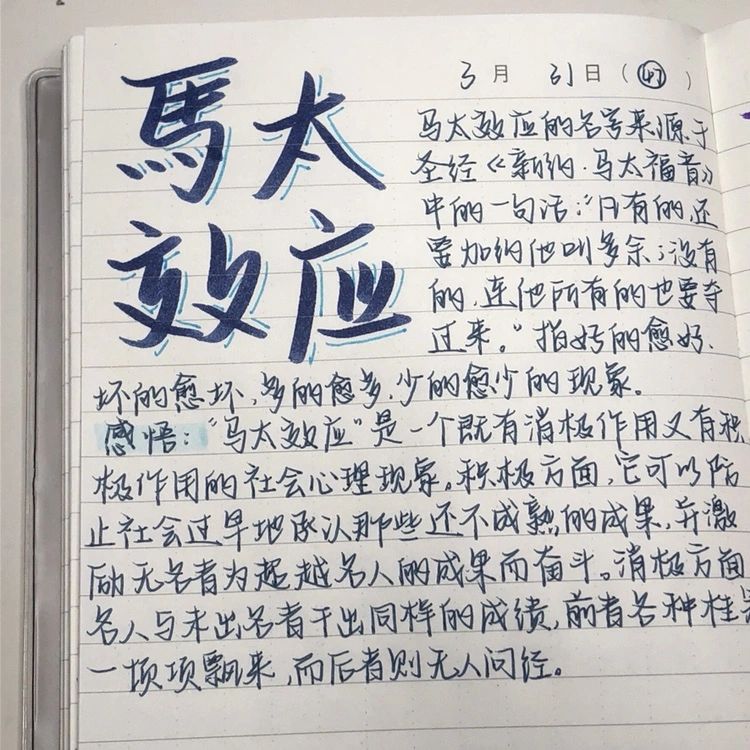 馬太
效应
3月 31日(47)
马太效应的名字来源于
圣经《新约·马太福音》
中的一句话:“凡有的,还
要加给他叫多余;没有
的,连他所有的也要夺
过来。”指好的愈好,
坏的愈坏,多的愈多,少的愈少的现象。
感悟:“马太效应”是一个既有消极作用又有积
极作用的社会心理现象。积极方面,它可以防
止社会过早地承认那些还不成熟的成果,并激
励无名者为超越名人的成果而奋斗。消极方面
名人与未出名者干出同样的成绩,前者各种桂
一顶项飘来,而后者则无人问经。